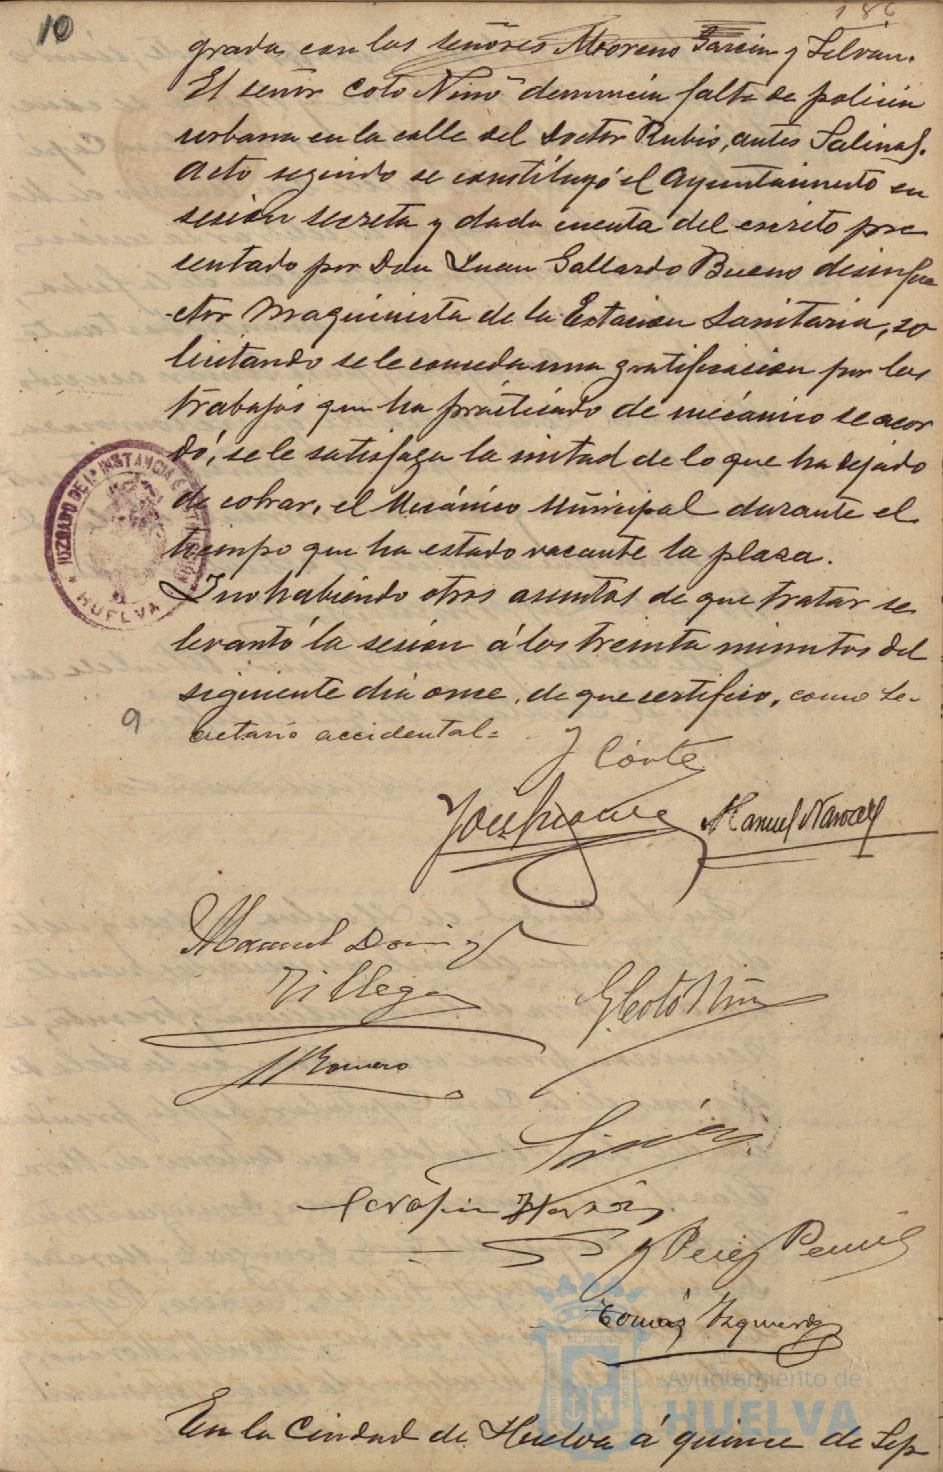 10
186
grada con los señores Moreno Garcia y Silván.
El señor Coto Niño denuncia falta de policia
urbana en la calle del Doctor Rubio, antes Salinas.
Acto seguido se constituyó el Ayuntamiento en
sesion secreta y dada cuenta del escrito pre
sentado por Don Juan Gallardo Bueno desinfe
ctor Maquinista de la Estacion Sanitaria, so
licitando se le conceda una gratificacion por los
trabajos que ha practicado de mecánico se acor
dó, se le satisfaga la mitad de lo que ha dejado
de cobrar, el Mecánico Municipal durante el
tiempo que ha estado vacante la plaza.
Y no habiendo otros asuntos de que tratar se
levantó la sesion á los treinta minutos del
siguiente dia once, de que certifico, como Se-
cretario accidental=
9
JUZGADO DE 1ª INSTANCIA
HUELVA
J Corte
Manuel Narvaez
Manuel Domig
Villega
G. Coto Niño
Romero
Serafin
J Perez
Tomás Izquierdo
Ayuntamiento de
HUELVA
En la Ciudad de Huelva á quince de Sep